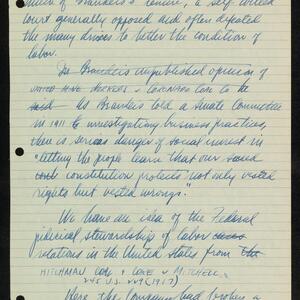 much of Brandeis's tenure, a self willed
court generally opposed and often defeated
the many drives to better the condition of
labor.
In Brandeis unpublished opinion of
UNITED MINE WORKERS + CORONADO COAL to be
said As Brandeis told a Senate Committee
in 1911 investigating business practices,
there is serious danger of social unrest in
"letting the people learn that our
constitution protects not only vested
rights but vested wrongs".
We have an idea of the Federal
judicial stewardship of labor
relations in the United States from the
HITCHMAN COAL + COKE v MITCHELL,
245 U.S. 229 (1917)
Here the Company had broken a